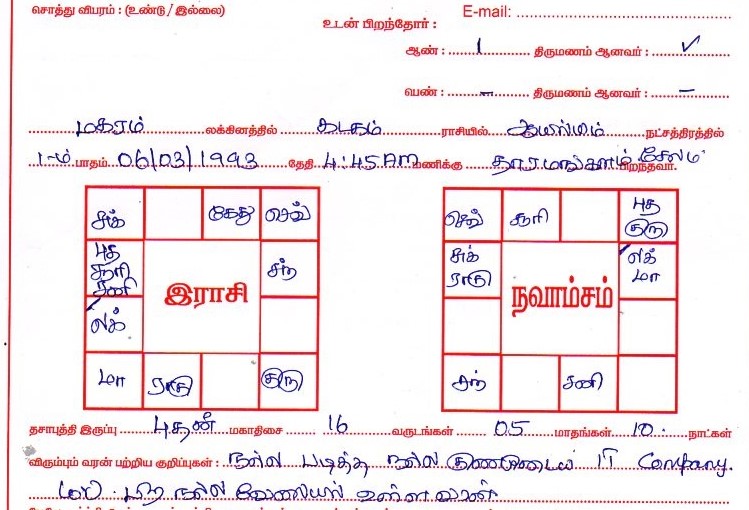 சொத்து விபரம் : (உண்டு / இல்லை) E-mail:
உடன் பிறந்தோர் :
ஆண் : 1 திருமணம் ஆனவர் : ✓
பெண் : - திருமணம் ஆனவர் : -
மகரம் லக்கினத்தில் கடகம் ராசியில் ஆயில்யம் நட்சத்திரத்தில்
1-ம் பாதம் 06/03/1993 தேதி 4:45 Am மணிக்கு தாரமங்கலம், சேலம் பிறந்தவர்.
சுக் கேது செவ்
புத சூரி சனி சந்
லக்
மா ராகு குரு
இராசி
செவ் சூரி புத குரு
சுக் ராகு லக் மா
சந் சனி
நவாம்சம்
தசாபுத்தி இருப்பு புதன் மகாதிசை 16 வருடங்கள் 05 மாதங்கள் 10 நாட்கள்
விரும்பும் வரன் பற்றிய குறிப்புகள் : நல்ல படித்த நல்ல IT Company.
பிற நல்ல வேலையில் உள்ளவர்